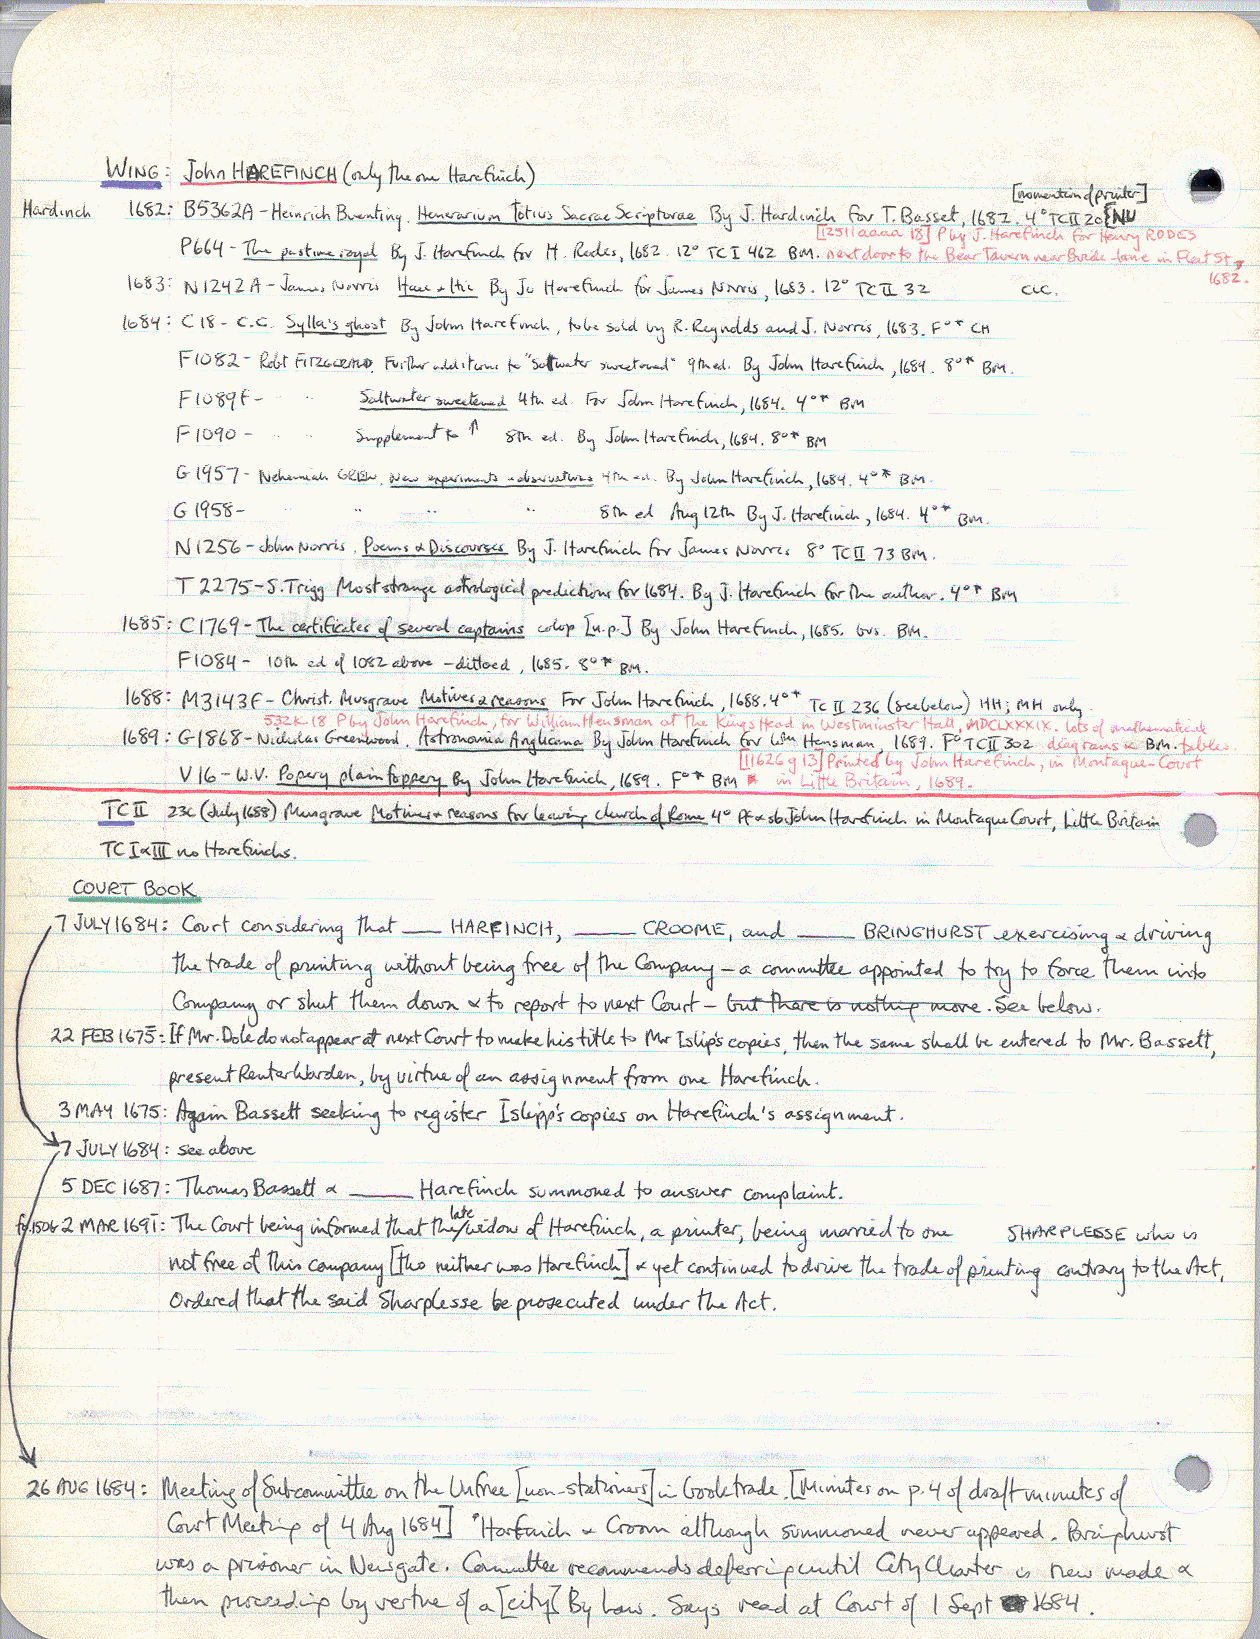 WING: John HAREFINCH (only the one Harefinch)
[no mention of printer]
Hardinch 1682: B5362A - Heinrich Buenting. Itinerarium Totius Sacrae Scripturae By J. Hardinch for T. Basset, 1682. 4° TC II 20 {NU
[12511 aaaa 18] P by J. Harefinch for Henry RODES
P664 - The pastime royal By J. Harefinch for H. Rodes, 1682. 12° TC I 462 BM. next door to the Bear Tavern near Bride-lane in Fleet St,
1682.
1683: N1242A - James Norris Haec & Hic By Jo Harefinch for James Norris, 1683. 12° TC II 32 CLC.
1684: C18 - C.C. Sylla's ghost By John Harefinch, to be sold by R. Reynolds and J. Norris, 1683. F°* CH
F1082 - Robt FITZGERALD. Further additions to "Saltwater sweetened" 9th ed. By John Harefinch, 1684. 8°* BM.
F1089f - " " Saltwater sweetened 4th ed. For John Harefinch, 1684. 4°* BM
F1090 - " " Supplement to ↑ 8th ed. By John Harefinch, 1684. 8°* BM
G1957 - Nehemiah GREW. New experiments & observations 4th ed. By John Harefinch, 1684. 4°* BM.
G1958 - " " " " 8th ed Aug 12th By J. Harefinch, 1684. 4°* BM.
N1256 - John Norris. Poems & Discourses By J. Harefinch for James Norris 8° TC II 73 BM.
T2275 - S. Trigg Most strange astrological predictions for 1684. By J. Harefinch for the author. 4°* BM
1685: C1769 - The certificates of several captains colop [n.p.] By John Harefinch, 1685. brs. BM.
F1084 - 10th ed of 1082 above - dittoed, 1685. 8°* BM.
1688: M3143F - Christ. Musgrave Motives & reasons For John Harefinch, 1688. 4°* TC II 236 (see below) HH; MH only.
532k 18 P by John Harefinch, for William Hensman at the Kings Head in Westminster Hall, MDCLXXXIX. lots of mathematical
1689: G1868 - Nicholas Greenwood. Astronomia Anglicana By John Harefinch for Wm Hensman, 1689. F° TC II 302 diagrams & BM. tables.
[11626 g 13] Printed by John Harefinch, in Montague-Court
V16 - W.V. Popery plain foppery By John Harefinch, 1689. F°* BM * in Little Britain, 1689.
TC II 236 (July 1688) Musgrave Motives & reasons for leaving church of Rome 4° Pf & sb John Harefinch in Montague Court, Little Britain
TC I & III no Harefinchs.
COURT BOOK
7 JULY 1684: Court considering that ___ HARFINCH, ___ CROOME, and ___ BRINGHURST exercising & driving
the trade of printing without being free of the Company - a committee appointed to try to force them into
Company or shut them down & to report to next Court - but there is nothing more. See below.
22 FEB 1675: If Mr. Dole do not appear at next Court to make his title to Mr Islip's copies, then the same shall be entered to Mr. Bassett,
present Renter Warden, by virtue of an assignment from one Harefinch.
3 MAY 1675: Again Bassett seeking to register Islipp's copies on Harefinch's assignment.
7 JULY 1684: see above
5 DEC 1687: Thomas Bassett & ___ Harefinch summoned to answer complaint.
fo.150b 2 MAR 1691: The Court being informed that the late widow of Harefinch, a printer, being married to one SHARPLESSE who is
not free of this company [tho neither was Harefinch] & yet continued to drive the trade of printing contrary to the Act,
Ordered that the said Sharplesse be prosecuted under the Act.
26 AUG 1684: Meeting of Subcommittee on the Unfree [non-stationers] in book trade. [Minutes on p.4 of draft minutes of
Court Meeting of 4 Aug 1684] "Harfinch & Croom although summoned never appeared. Bringhurst
was a prisoner in Newgate. Committee recommends deferring until City Charter is new made &
then proceeding by vertue of a [city] By Law. Says read at Court of 1 Sept 1684.